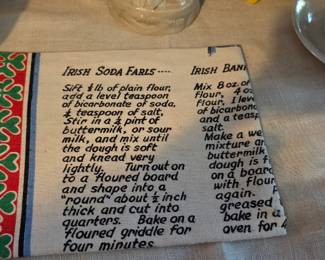 IRISH SODA FARLS ----
Sift ½ lb of plain flour,
add a level teaspoon
of bicarbonate of soda,
½ teaspoon of salt,
Stir in a ½ pint of
buttermilk, or sour
milk, and mix until
the dough is soft
and knead very
lightly. Turn out on
to a floured board
and shape into a
"round" about ½ inch
thick and cut into
quarters. Bake on a
floured griddle for
four minutes
IRISH BAN
Mix 8 oz of
flour, 4 oz
flour, 1 leve
of bicarbona
and a teasp
salt.
Make a we
mixture an
buttermilk
dough is f
on a board
with flour
again.
greased
bake in a
oven for 4